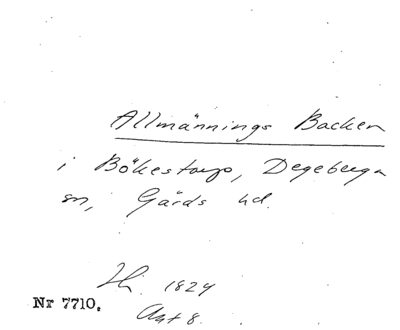 Allmännings Backen
i Bökestorp, Degeberga
sn, Gärds hd.
Hi. 1824
Nr 7710.
Akt 8.